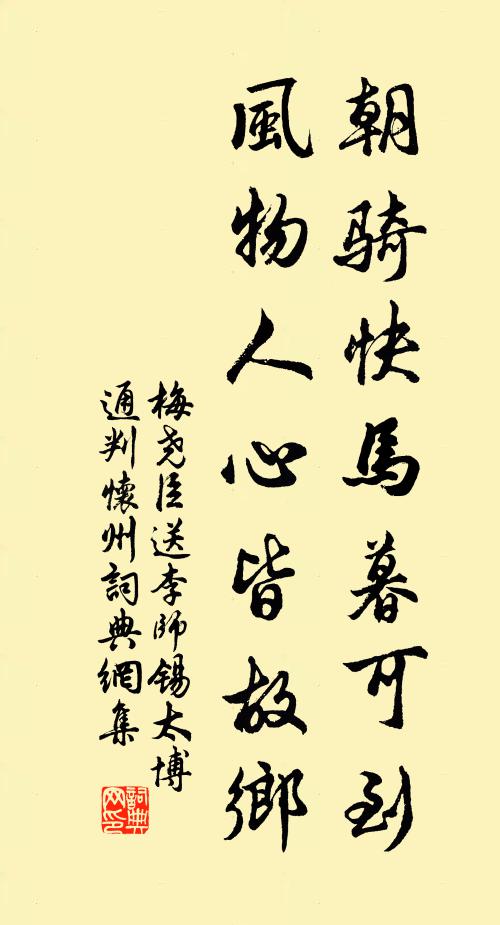 朝騎快馬暮可到
風物人心皆故鄉
梅堯臣送李師錫太博
通判懷州詞典網集
詞典网印